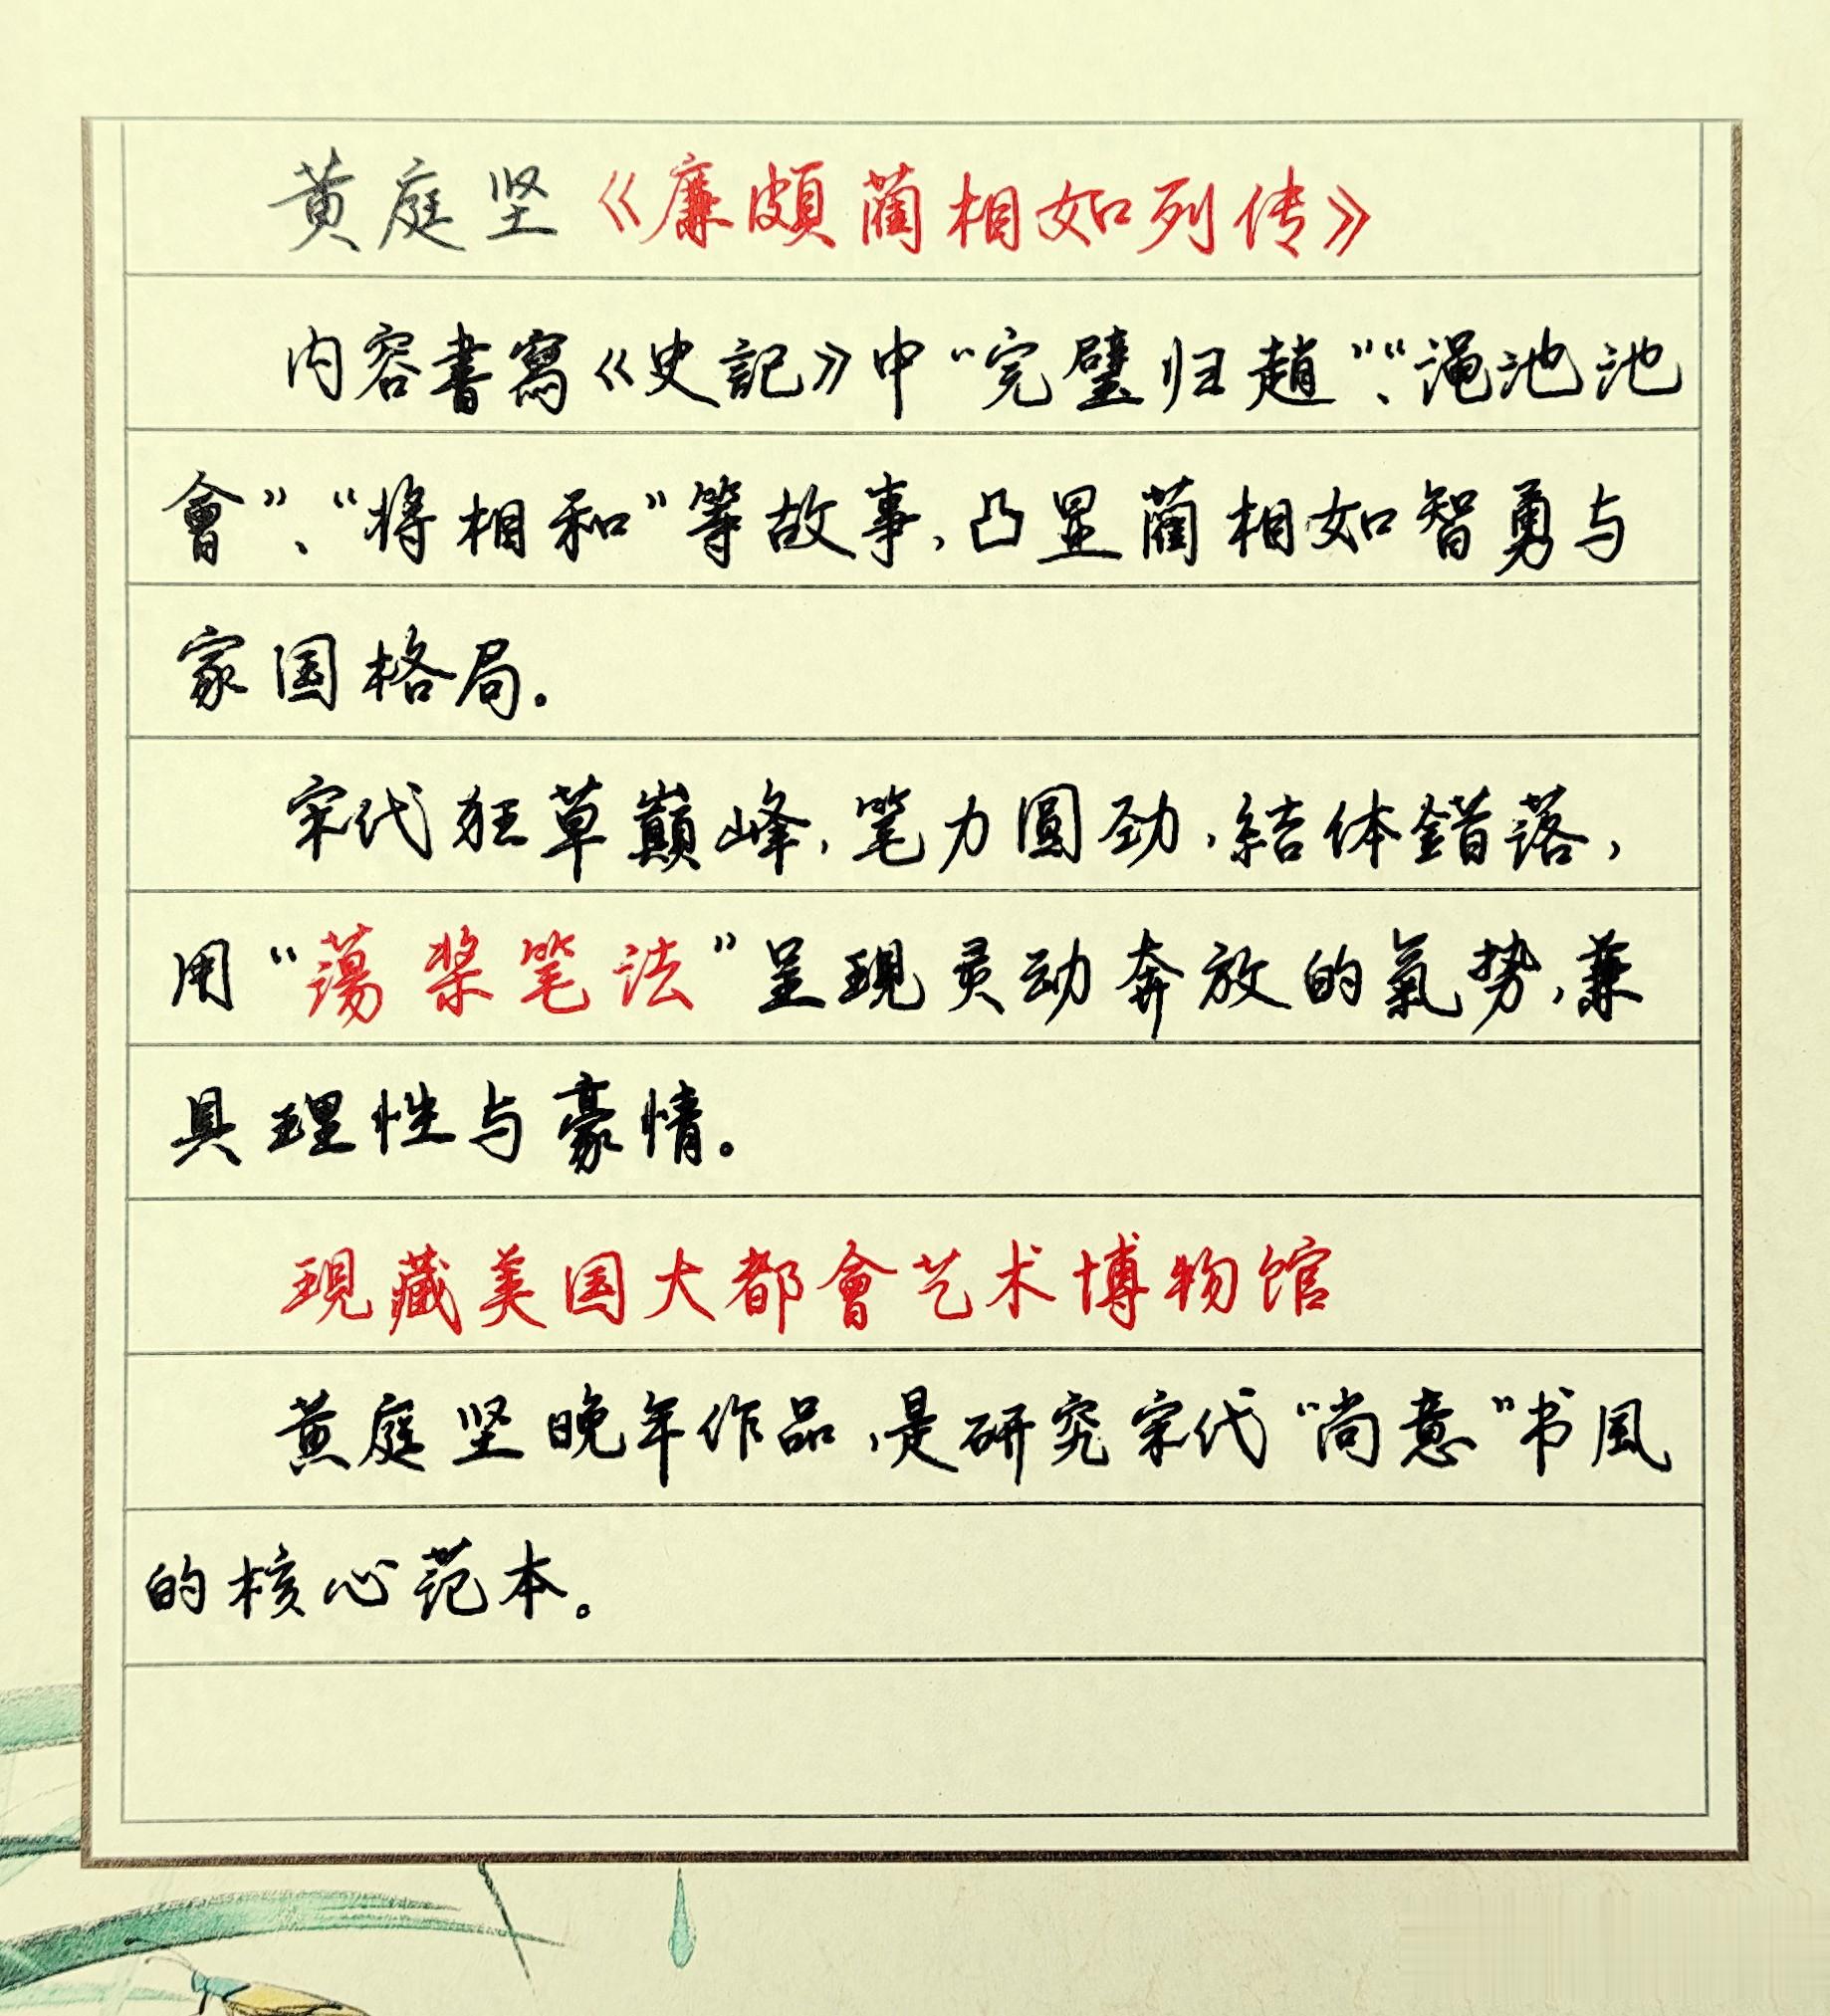 黄庭坚《廉颇蔺相如列传》
内容書寫《史記》中“完璧归趙”、“渑池池
會”、“将相和”等故事,凸显蔺相如智勇与
家国格局。
宋代狂草巅峰,笔力圓劲,結体錯落,
用“蕩桨笔法”呈現灵动奔放的氣势,兼
具理性与豪情。
現藏美国大都會艺术博物馆
黄庭坚晚年作品,是研究宋代“尚意”书風
的核心范本。